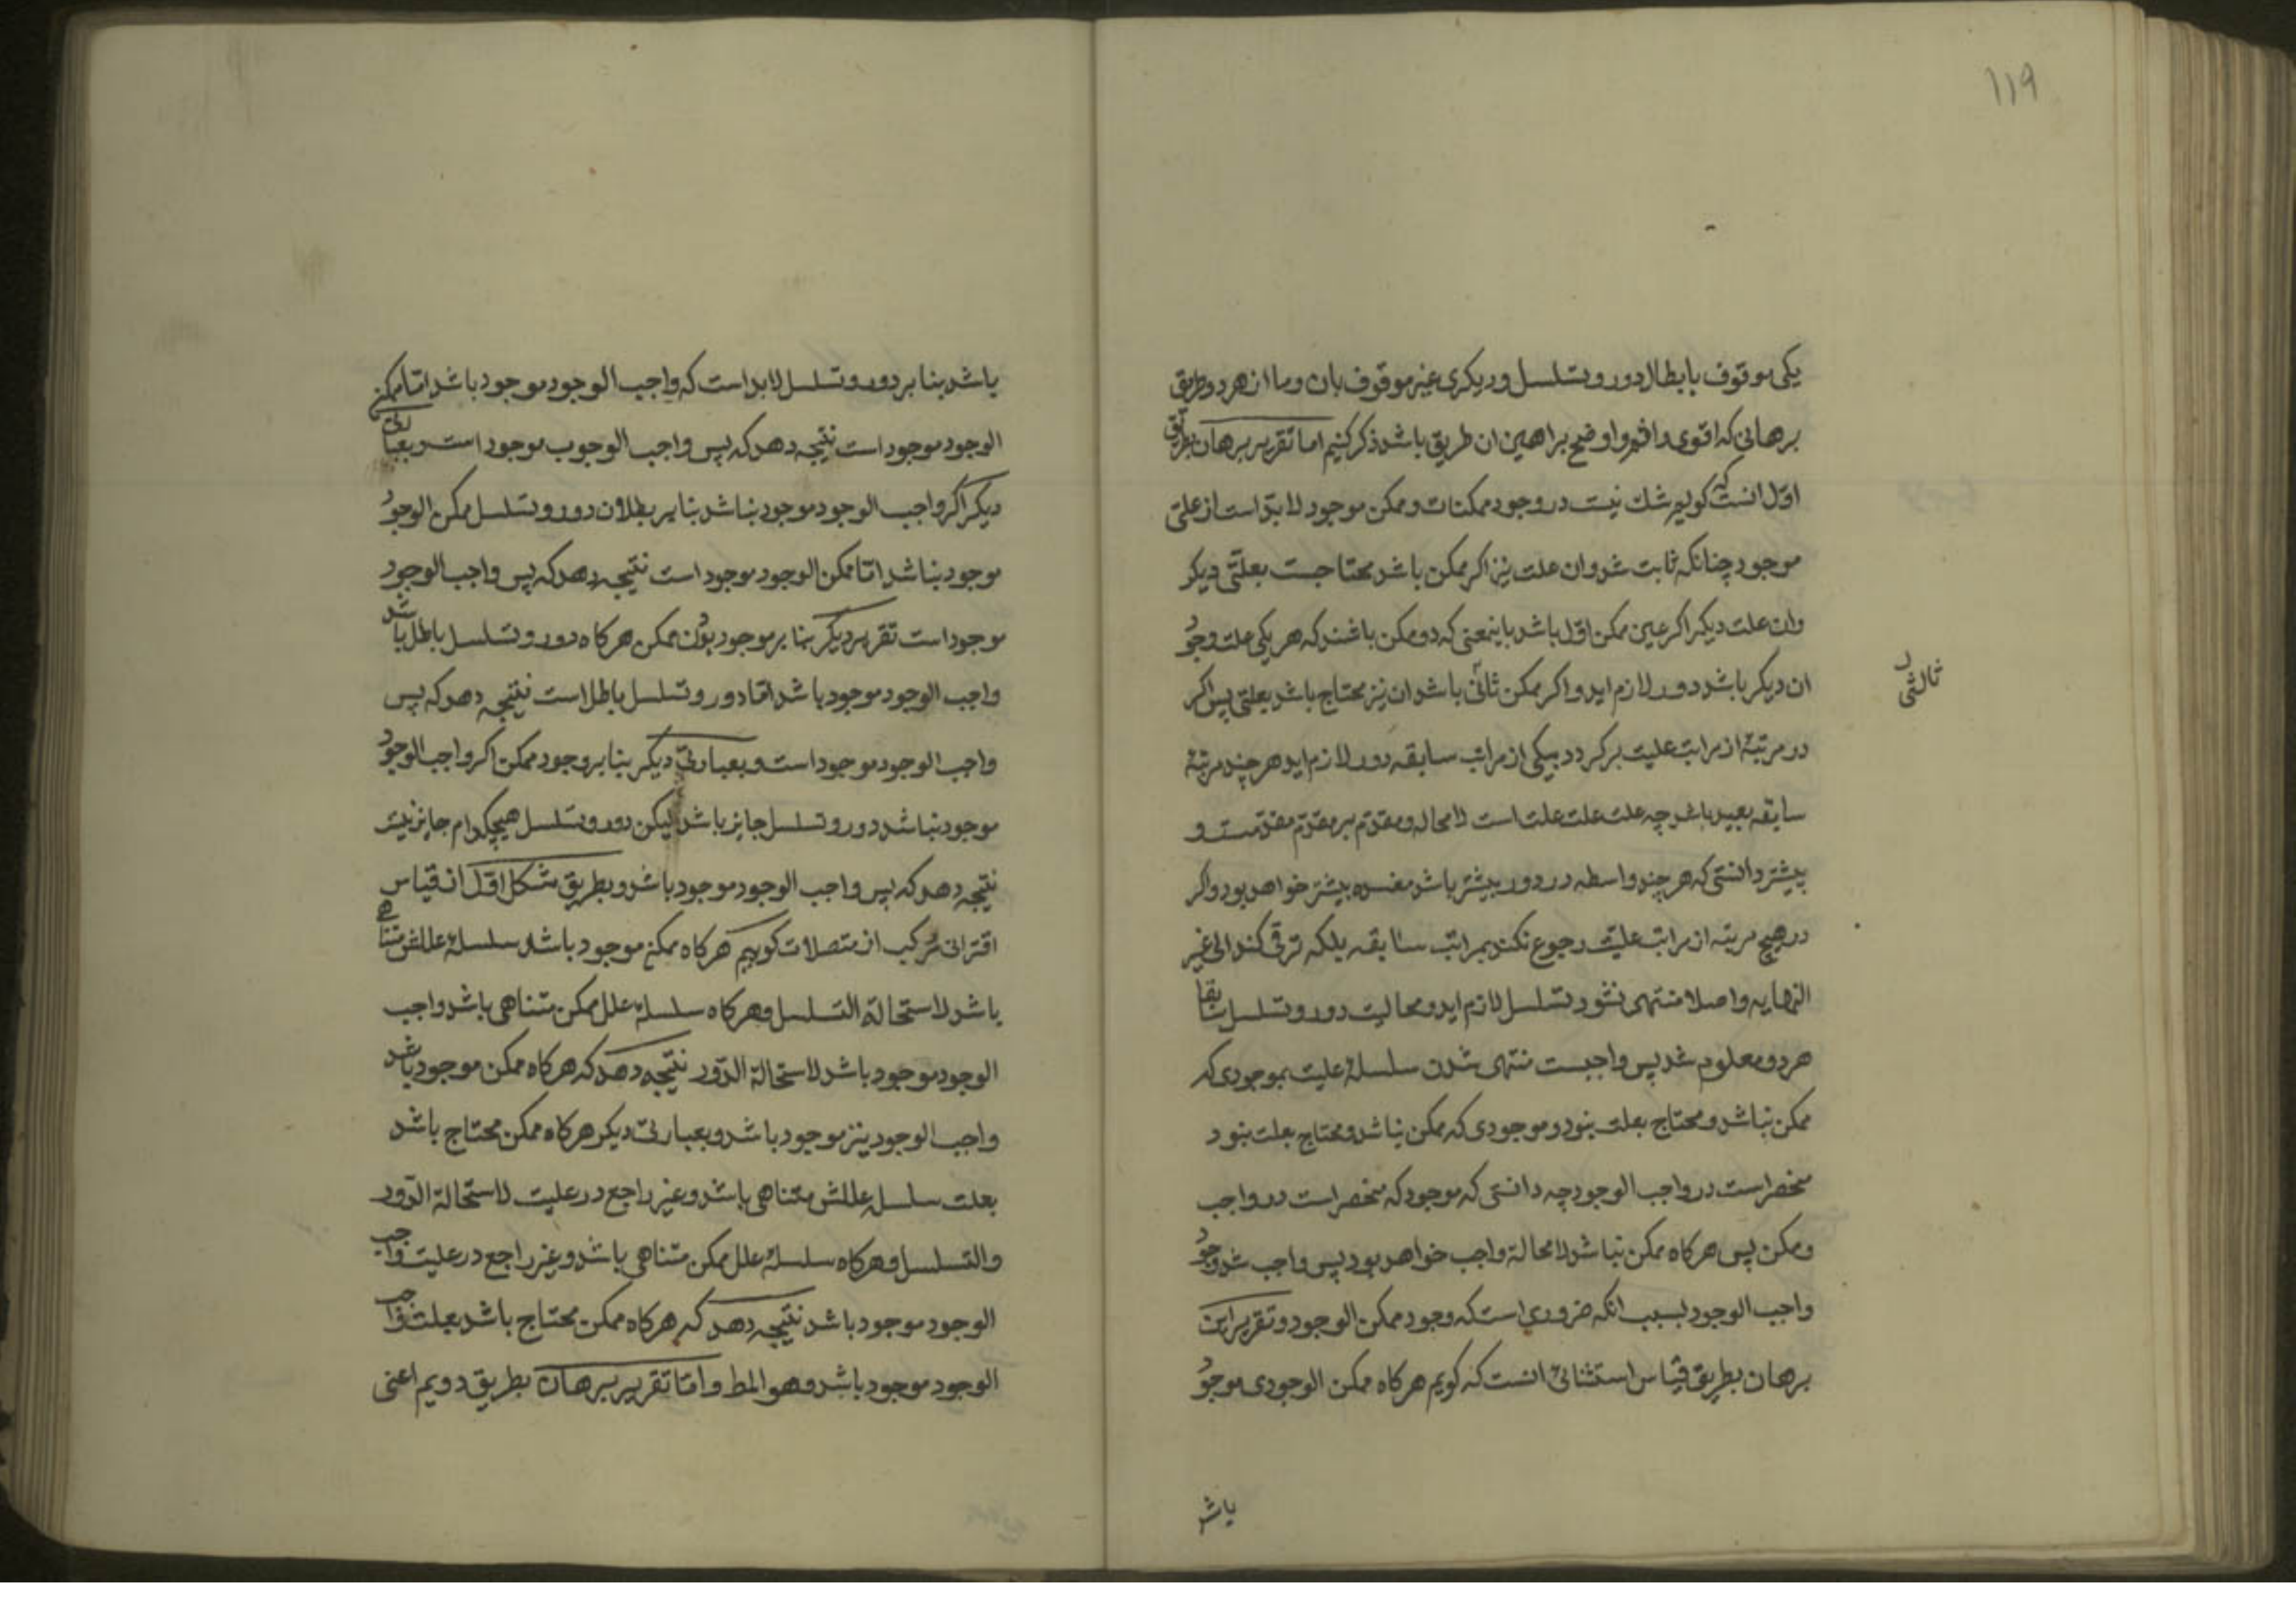 ۱۱۹
یکی موقوف بابطال دور و تسلسل و دیکری غیر موقوف بان و ما از هر دو طریق
برهانی که اقوی و اتم و اوضح براهین ان طریق باشد ذکر کنیم اما تقریر برهان بطریق
اول انست که کوییم شك نیست در وجود ممکنات و ممکن موجود لابد است از علتی
موجود چنانکه ثابت شد و ان علت نیز اکر ممکن باشد محتاجست بعلتی دیکر
و ان علت دیکر اکر عین ممکن اول باشد باینمعنی که دو ممکن باشند که هر یکی علت وجود
ان دیکر باشد دور لازم اید و اکر ممکن ثانی باشد ان نیز محتاج باشد بعلتی پس اکر
ثالثی
در مرتبهٔ از مراتب علیت برکردد بیکی از مراتب سابقه دور لازم اید هر چند مرتبهٔ
سابقه بعید باشد چه علت علت علت علت است لا محاله و مقدم بر مقدم مقدمست و
بیشتر دانستی که هر چند واسطه در دور بیشتر باشد مفسده بیشتر خواهد بود و اکر
در هیچ مرتبه از مراتب علیت رجوع نکند بمراتب سابقه بلکه ترقی کند الی غیر
النهایه و اصلا منتهی نشود تسلسل لازم اید و محالیت دور و تسلسل سابقا
هر دو معلوم شد پس واجبست منتهی شدن سلسلهٔ علیت بموجودی که
ممکن نباشد و محتاج بعلت نبود و موجودی که ممکن نباشد و محتاج بعلت نبود
منحصر است در واجب الوجود چه دانستی که موجود که منحصر است در واجب
و ممکن پس هرکاه ممکن نباشد لا محالة واجب خواهد بود پس واجب شد وجود
واجب الوجود بسبب انکه ضروری است که وجود ممکن الوجود و تقریر این
برهان بطریق قیاس استثنائی انست که کویم هرکاه ممکن الوجودی موجود
باشد
باشد بنا بر دور و تسلسل لابد است که واجب الوجود موجود باشد اما ممکن
الوجود موجود است نتیجه دهد که پس واجب الوجوب موجود است و بعبارتی
دیکر اکر واجب الوجود موجود نباشد بنا بر بطلان دور و تسلسل ممکن الوجود
موجود نباشد اما ممکن الوجود موجود است نتیجه دهد که پس واجب الوجود
موجود است تقریر دیکر بنا بر موجود بودن ممکن هرکاه دور و تسلسل باطل باشد
واجب الوجود موجود باشد اما دور و تسلسل باطل است نتیجه دهد که پس
واجب الوجود موجود است و بعبارتی دیکر بنا بر وجود ممکن اکر واجب الوجود
موجود نباشد دور و تسلسل جایز باشد لیکن دور و تسلسل هیچکدام جایز نیست
نتیجه دهد که پس واجب الوجود موجود باشد و بطریق شکل اول از قیاس
اقترانی مرکب از متصلات کوییم هرکاه ممکن موجود باشد سلسلهٔ عللش متناهی
باشد لاستحالة التسلسل و هرکاه سلسلهٔ علل ممکن متناهی باشد واجب
الوجود موجود باشد لاستحالة الدّور نتیجه دهد که هرکاه ممکن موجود باشد
واجب الوجود نیز موجود باشد و بعبارتی دیکر هرکاه ممکن محتاج باشد
بعلت سلسل عللش متناهی باشد و غیر راجع در علیت لاستحالة الدّور
والتسلسل و هرکاه سلسلهٔ علل ممکن متناهی باشد و غیر راجع در علیت واجب
الوجود موجود باشد نتیجه دهد که هرکاه ممکن محتاج باشد بعلت واجب
الوجود موجود باشد و هو المط و اما تقریر برهان بطریق دویم اعنی